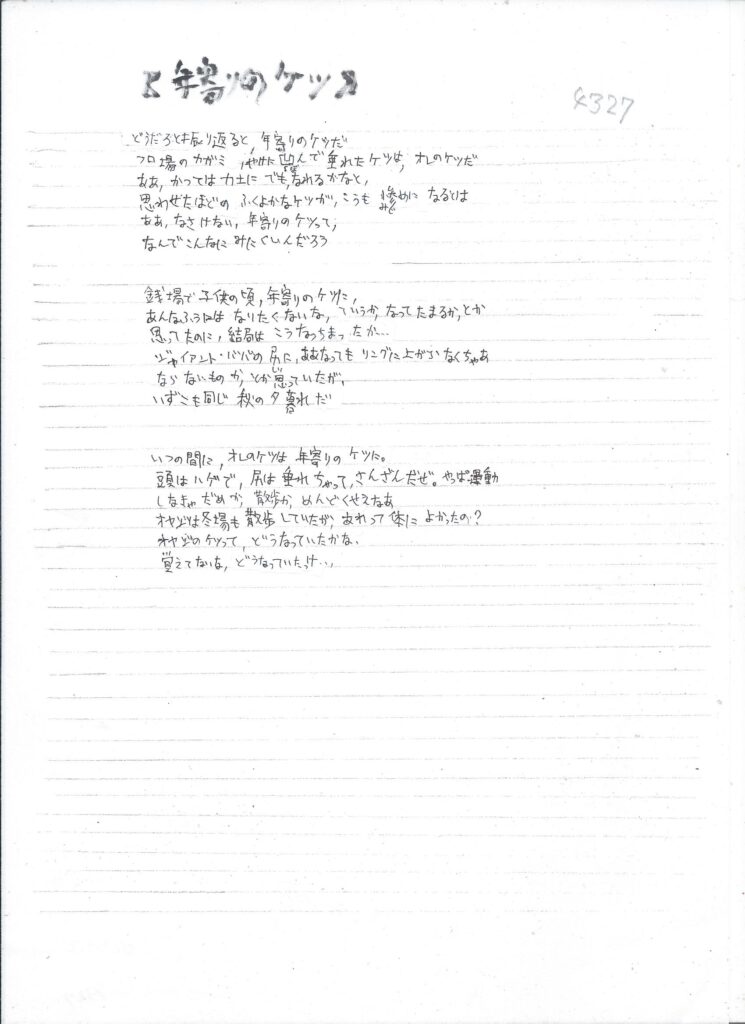 【年寄りのケツ】
4327
どうだろと振り返ると、年寄りのケツだ
フロ場のカガミ、やけに凹んで垂れたケツは、オレのケツだ
ああ、かつては力士にでも、なれるかなと、
思わせたほどの ふくよかなケツが、こうも 惨めに なるとは
みじ
ああ、なさけない、年寄りのケツって、
なんでこんなに みにくいんだろう
銭場で子供の頃、年寄りのケツに、
あんなふうには なりたくないな、ていうか、なってたまるか、とか
思ってたのに、結局は こうなっちまったか…
ジャイアント・ババの尻に、ああなっても リングに上がらなくちゃあ
ならないものか、とか思っていたが、
いずこも同じ 秋の夕暮れだ
いつの間に、オレのケツは 年寄りのケツに。
頭はハゲで、尻は垂れちゃって、さんざんだぜ。やっぱ運動
しなきゃだめか、散歩か、めんどくせえなあ
オヤジは冬場も散歩していたが、あれって体に よかったの?
オヤジのケツって、どうなっていたかな、
覚えてないな、どうなっていたっけ…